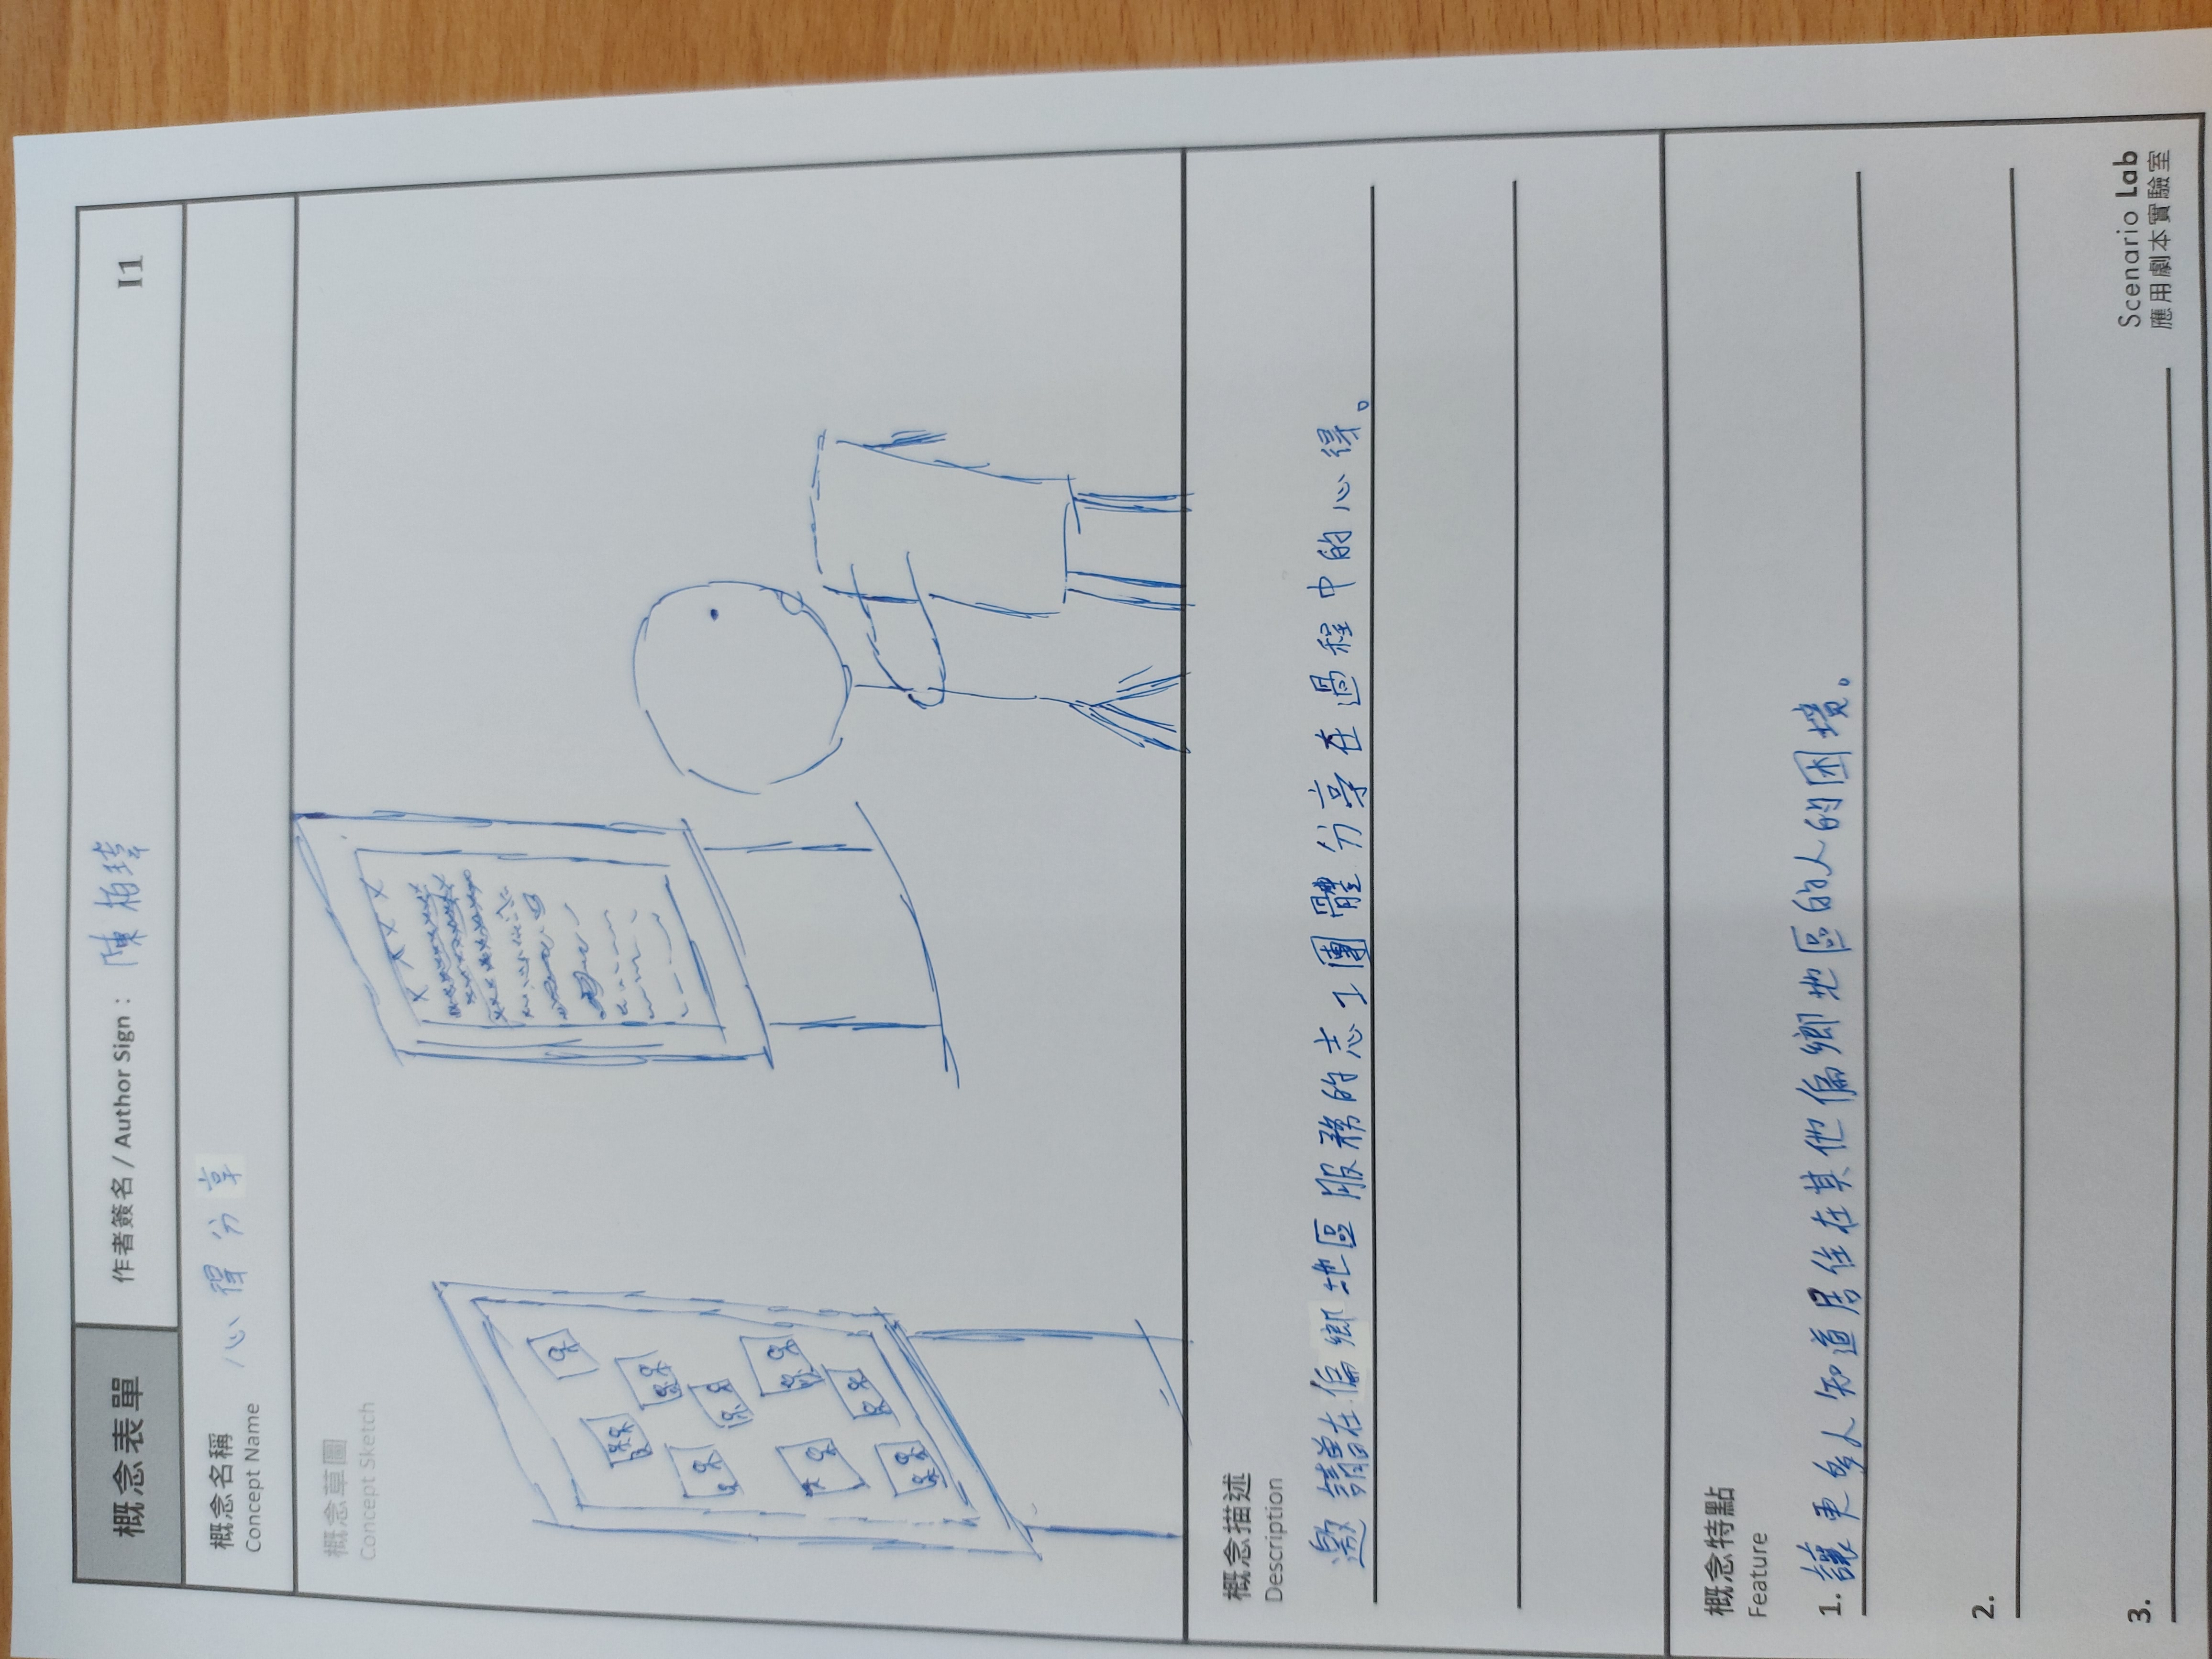 概念表單
作者簽名 / Author Sign： 陳柏瑋
I1
概念名稱 心得分享
Concept Name
概念草圖
Concept Sketch
概念描述
Description
邀請曾在偏鄉地區服務的志工團體分享在過程中的心得。
概念特點
Feature
1. 讓更多人知道居住在其他偏鄉地區的人的困境。
2.
3.
Scenario Lab
應用劇本實驗室